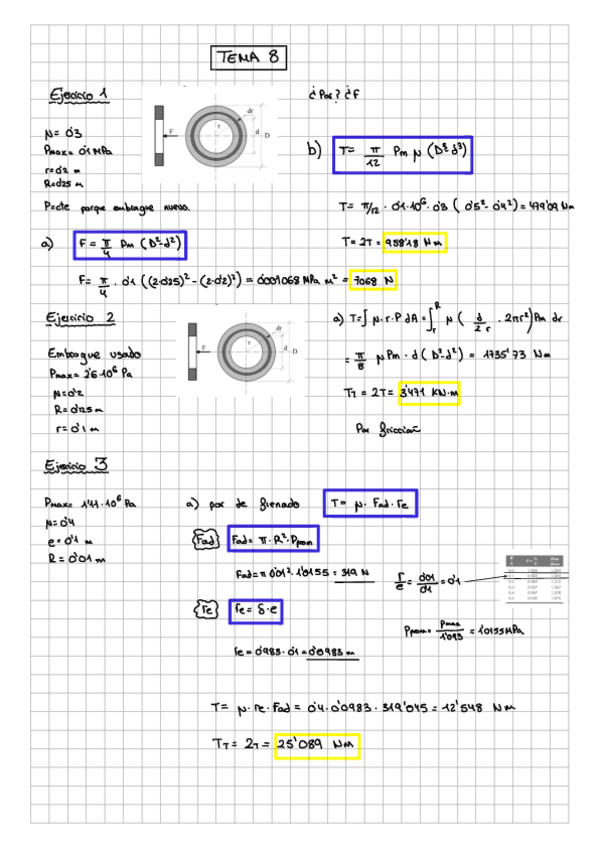 TEMA 8
Ejercicio 1
¿Par? ¿F
μ= 0'3
Pmax= 0'1 MPa
r=0'2 m
R=0'25 m
P=cte porque embrague nuevo.
dr
F
r
d
D
b) T= π/12 Pm μ (D³-d³)
T= π/12 · 0'1·10⁶· 0'3 ( 0'5³- 0'4³)= 479'09 Nm
T= 2T= 958'18 Nm
a) F = π/4 Pm (D²-d²)
F= π/4 · 0'1 ((2·0'25)² - (2·0'2)²) = 0'007068 MPa m² = 7068 N
Ejercicio 2
Embrague usado
Pmax= 2'6·10⁶ Pa
μ=0'2
R= 0'125 m
r= 0'1 m
dr
F
r
d
D
a) T=∫ μ·r·P dA = ∫ᵣᴿ μ ( d/2r · 2πr²) Pm dr
= π/8 μ Pm · d ( D²-d²) = 1735'73 Nm
T_T = 2T= 3'471 KN·m
Por fricción
Ejercicio 3
Pmax= 1'11·10⁶ Pa
μ=0'4
e= 0'1 m
R= 0'01 m
a) par de frenado T= μ· Fad·re
Fad Fad= π·R²·Pprom
Fad= π 0'01²· 1'0155 = 319 N
r/e = 0'01/0'1 = 0'1
re re= δ·e
Pprom= Pmax/1'093 = 1'0155 MPa
re = 0'983· 0'1 = 0'0983 m
T= μ·re·Fad = 0'4·0'0983·319'045 = 12'548 Nm
T_T = 2T = 25'089 Nm